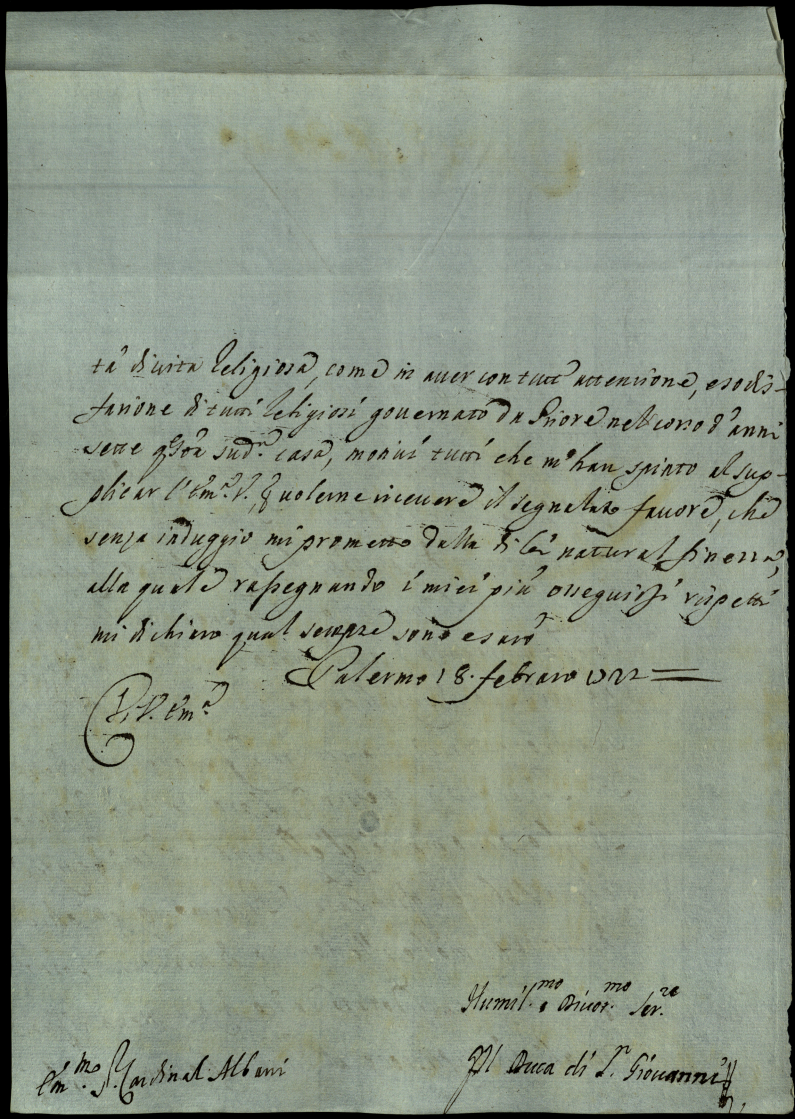 tà di vita Religiosa, come in aver con tutt'attenzione, e sodis-
fazione di tutti Religiosi governato da Priore nel corso d'anni
sette qsta sudª casa, motivi tutti che m'han spinto al sup-
plicar l'Emª V., volerne ricevere il segnalato favore, che
senza induggio mi prometto dalla di lei natural finezza,
alla quale rassegnando i miei più osseguiosi rispetti
mi dichiaro qual sempre sono e sarò
Palermo 18. febraro 1722
D. V. Emª
Humil.mo e Divot.mo Ser.re
Em.mo S.r Cardinal Albani
Il Duca di S.n Giovanni